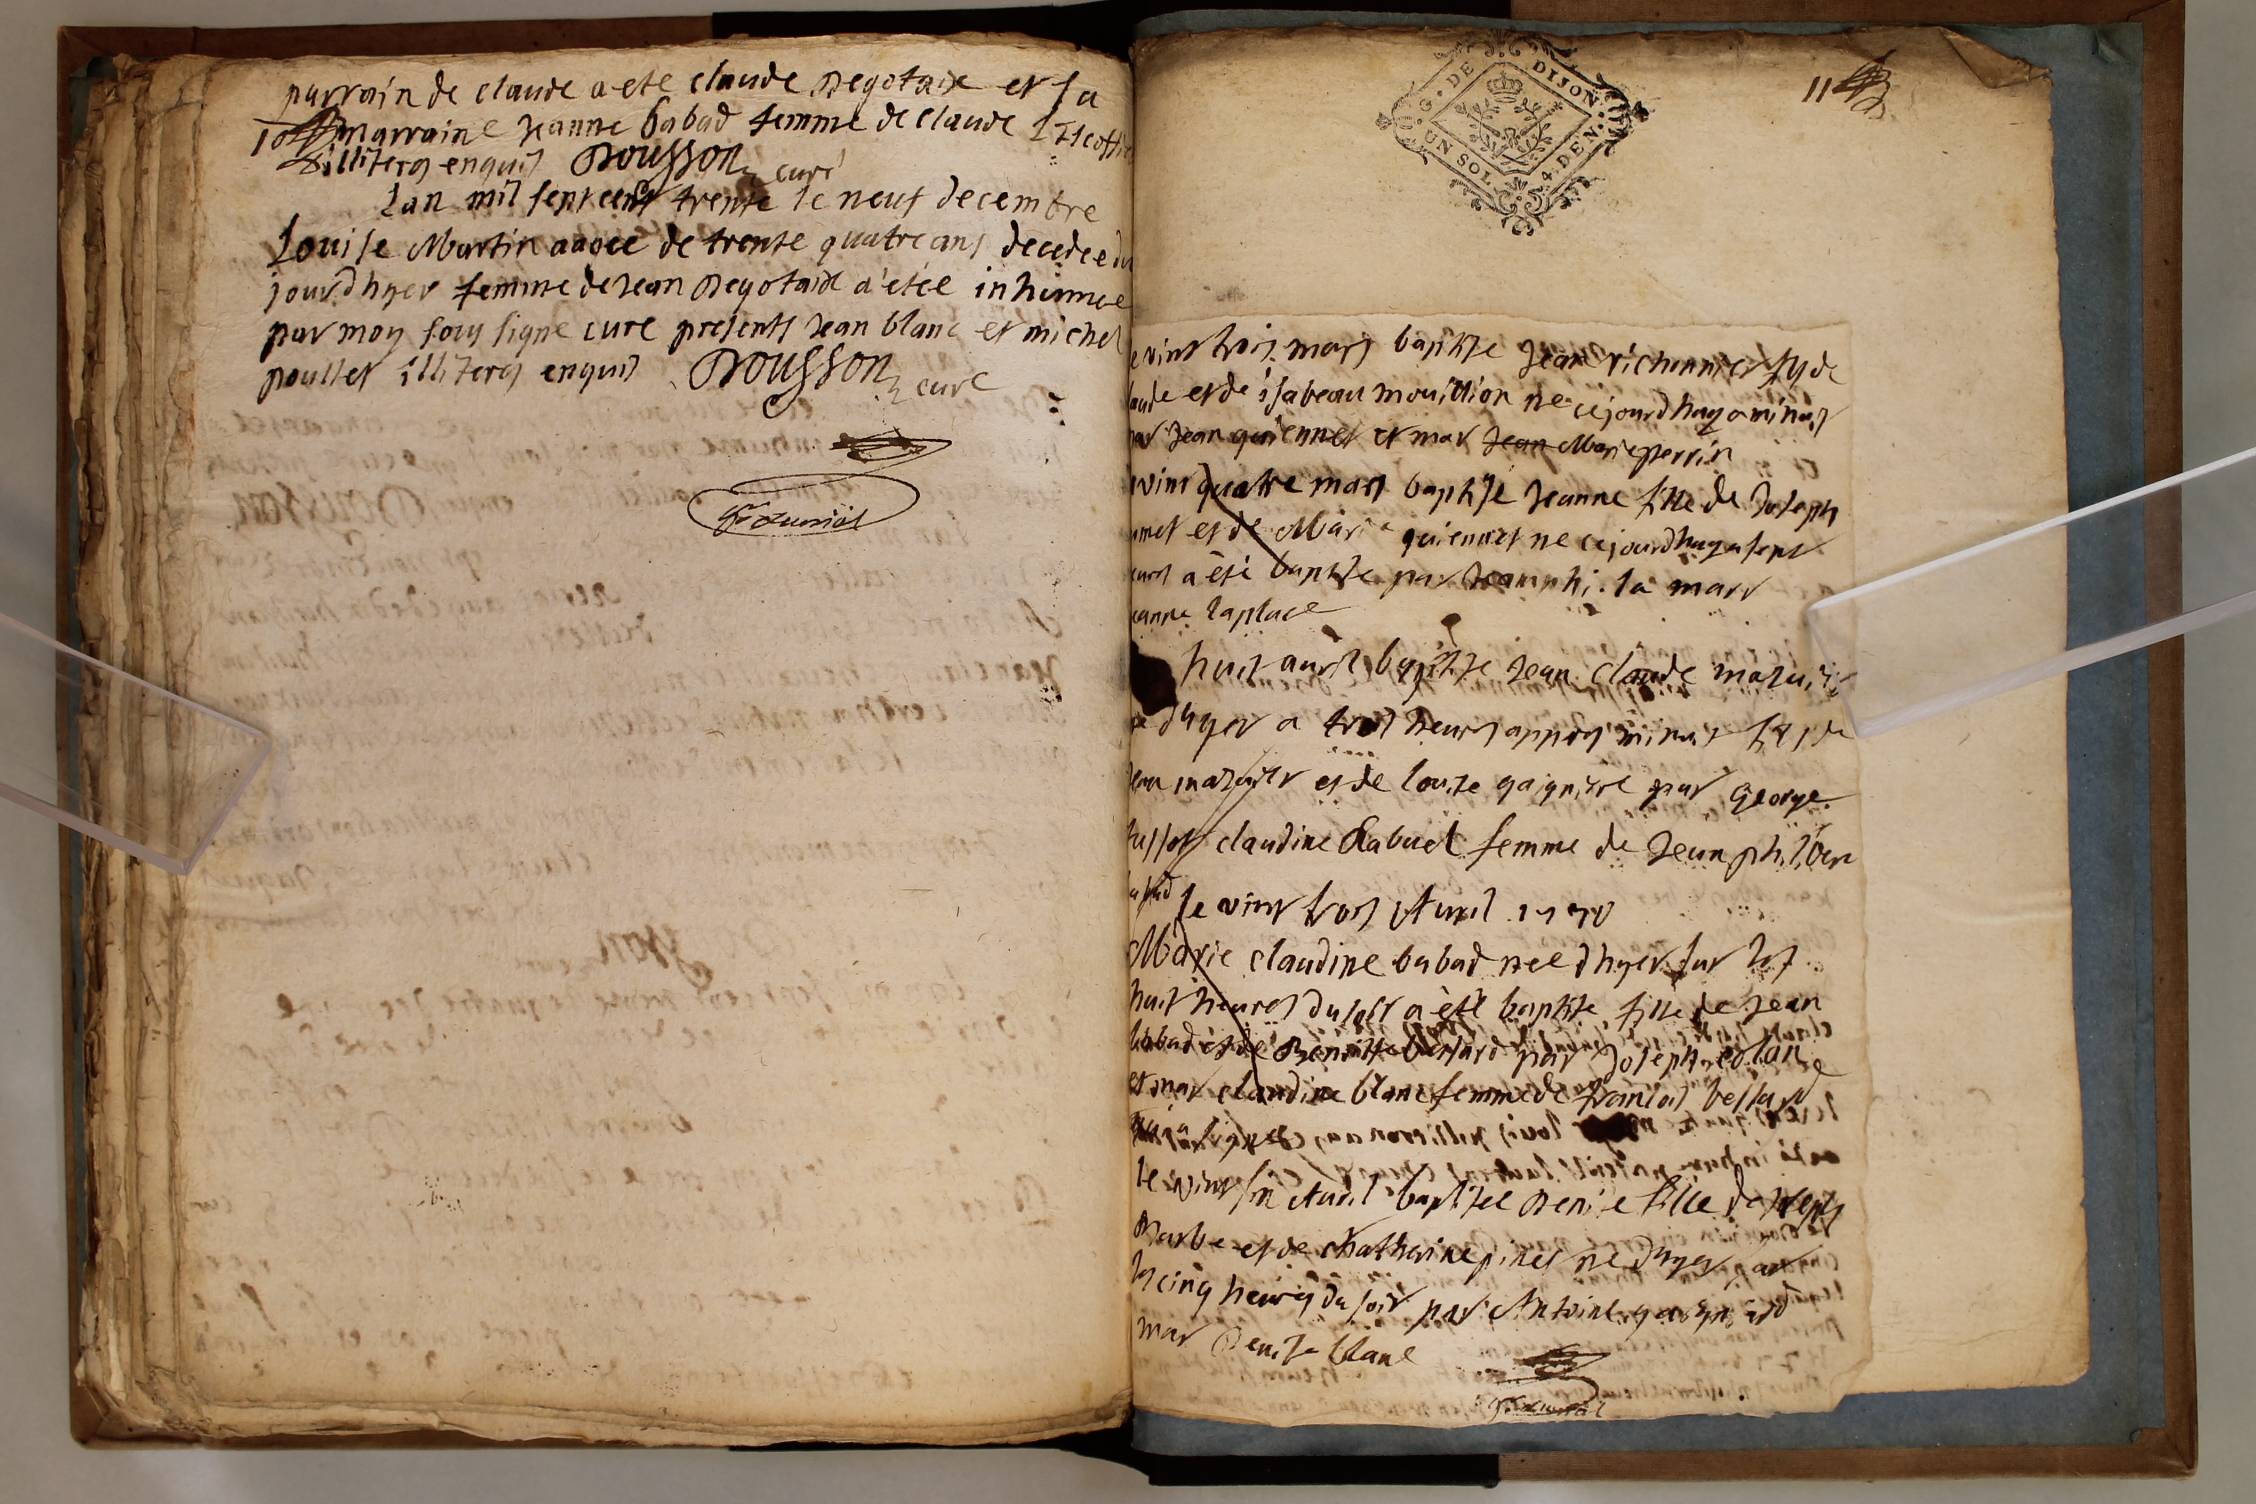 parrain de claude a ete claude Degotaix et sa
10 marraine Jeanne babad femme de claude
illiters enquis Dousson curé
Lan mil sept cent trente le neuf decembre
Louise Martin aagee de trente quatre ans decedee du
jourdhyer femme de Jean Degotaix a étée inhumee
par moy sous signe cure presents Jean blanc et michel
poullet illiters enquis Dousson cure
11
G. DE DIJON.
UN SOL 4. DEN.
vint trois mars baptise Jean richonnier fils de
aude et de isabeau mouillion ne cejourdhuy a minuit
par Jean guiennet et mar Jean Marie perrin
vint quatre mars baptise Jeanne fille de Joseph
et de Marie guiennet ne cejourdhuy a sept
a été baptise par la marr
eanne laplace
huit avril baptise Jean claude mazuir
dhyer a trois heures appres minuit fils de
mazuier et de louise gaigniere par George
claudine Rabuel femme de Jean philiber
le vint trois Avril 1730
Marie claudine babad nee dhyer sur les
huit heures du soir a été baptise fille de Jean
babad et de Benoitte bessard par Joseph
et mar claudine blanc femme de francois bessard
qui a signe
le vint six Avril baptisee Denise fille de Joseph
Barbe et de chatherine pinet ne dhyer sur
les cinq heures du soir par Antoine
mar Denise blanc